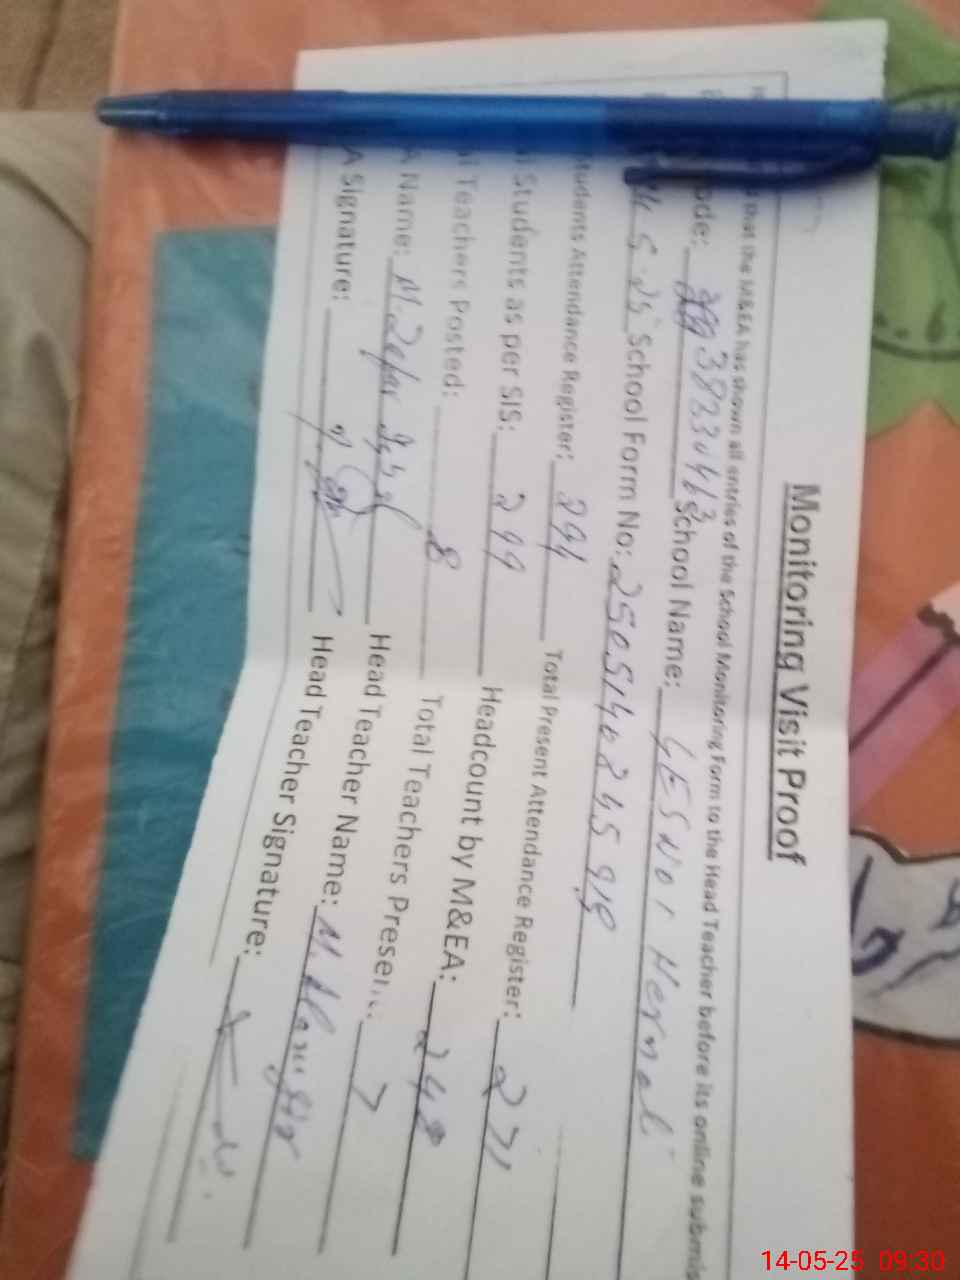 Monitoring Visit Proof
that the M&EA has shown all entries of the School Monitoring Form to the Head Teacher before its online submis
ode: 38230463 School Name: GES No 1 Hernoli
5.25 School Form No: 2505140845
Students Attendance Register: 294 Total Present Attendance Register: 271
Students as per SIS: 299 Headcount by M&EA: 248
Teachers Posted: 8 Total Teachers Present: 7
A Name: M. Zafar Iqbal Head Teacher Name: M.
A Signature: Head Teacher Signature:
14-05-25 09:30